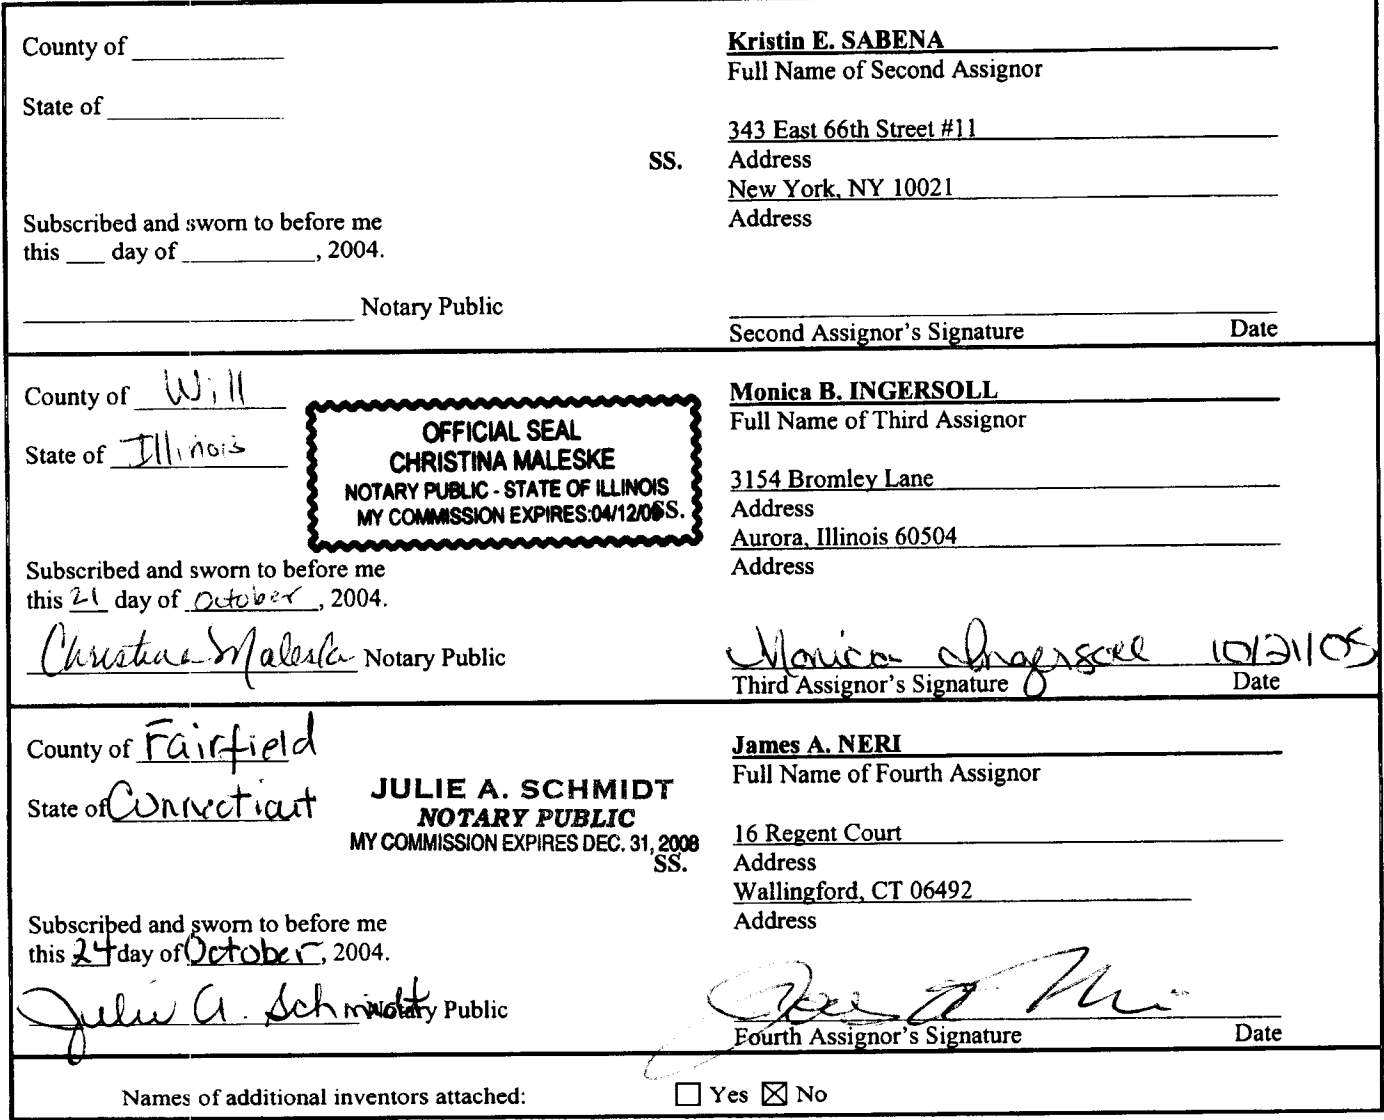 County of
State of
SS.
Subscribed and sworn to before me
this ___ day of ___________, 2004.
Notary Public
Kristin E. SABENA
Full Name of Second Assignor
343 East 66th Street #11
Address
New York, NY 10021
Address
Second Assignor's Signature Date
County of Will
State of Illinois
OFFICIAL SEAL
CHRISTINA MALESKE
NOTARY PUBLIC - STATE OF ILLINOIS
MY COMMISSION EXPIRES:04/12/06
SS.
Subscribed and sworn to before me
this 21 day of October, 2004.
Christina Maleske Notary Public
Monica B. INGERSOLL
Full Name of Third Assignor
3154 Bromley Lane
Address
Aurora, Illinois 60504
Address
Monica Ingersoll 10/21/05
Third Assignor's Signature Date
County of Fairfield
State of Connecticut
JULIE A. SCHMIDT
NOTARY PUBLIC
MY COMMISSION EXPIRES DEC. 31, 2008
SS.
Subscribed and sworn to before me
this 24 day of October, 2004.
Julie A. Schmidt Notary Public
James A. NERI
Full Name of Fourth Assignor
16 Regent Court
Address
Wallingford, CT 06492
Address
Fourth Assignor's Signature Date
Names of additional inventors attached: ☐ Yes ☒ No